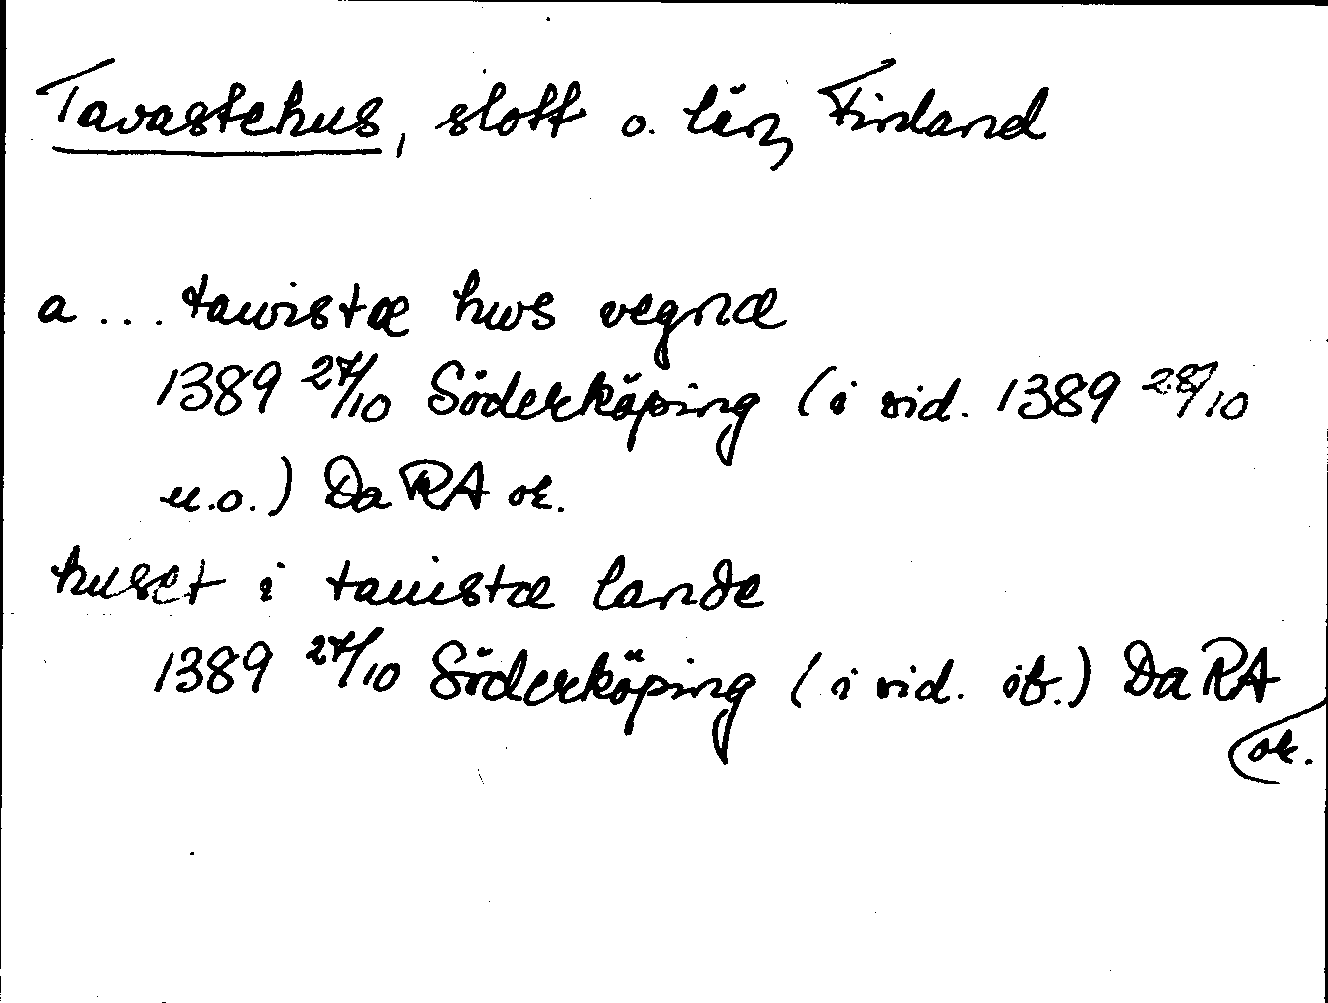 Tavastehus, slott o. län, Finland
a ... tawistæ hws vegnæ
1389 27/10 Söderköping (i vid. 1389 28/10
u.o.) DaRA or.
huset i tauistæ lande
1389 27/10 Söderköping (i vid. if.) DaRA
or.